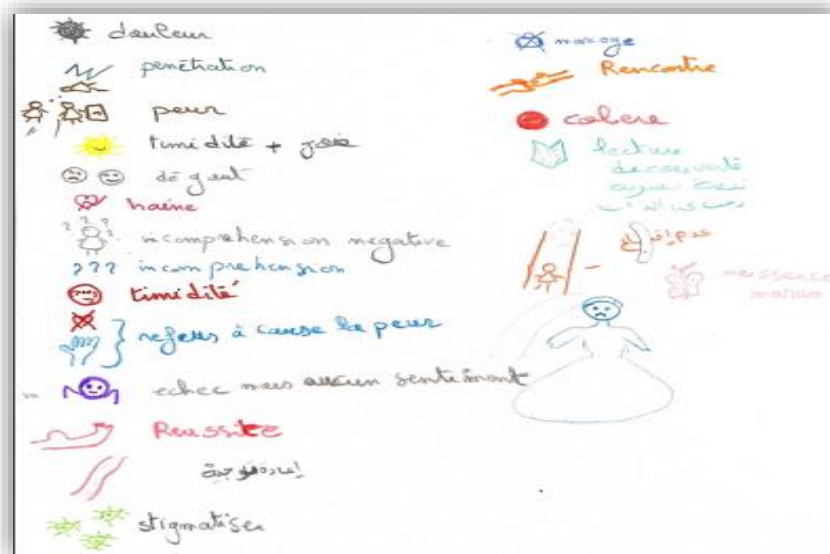 douleur
penétration
peur
timidité + joie
dégout
haine
? ? ? ?
incomprehension negative
? ? ? incomprehension
timidité
refus à cause la peur
echec mais aucun sentiment
Reussite
stigmatiser
mariage
Rencontre
colere
lecture
decouverte
naissance